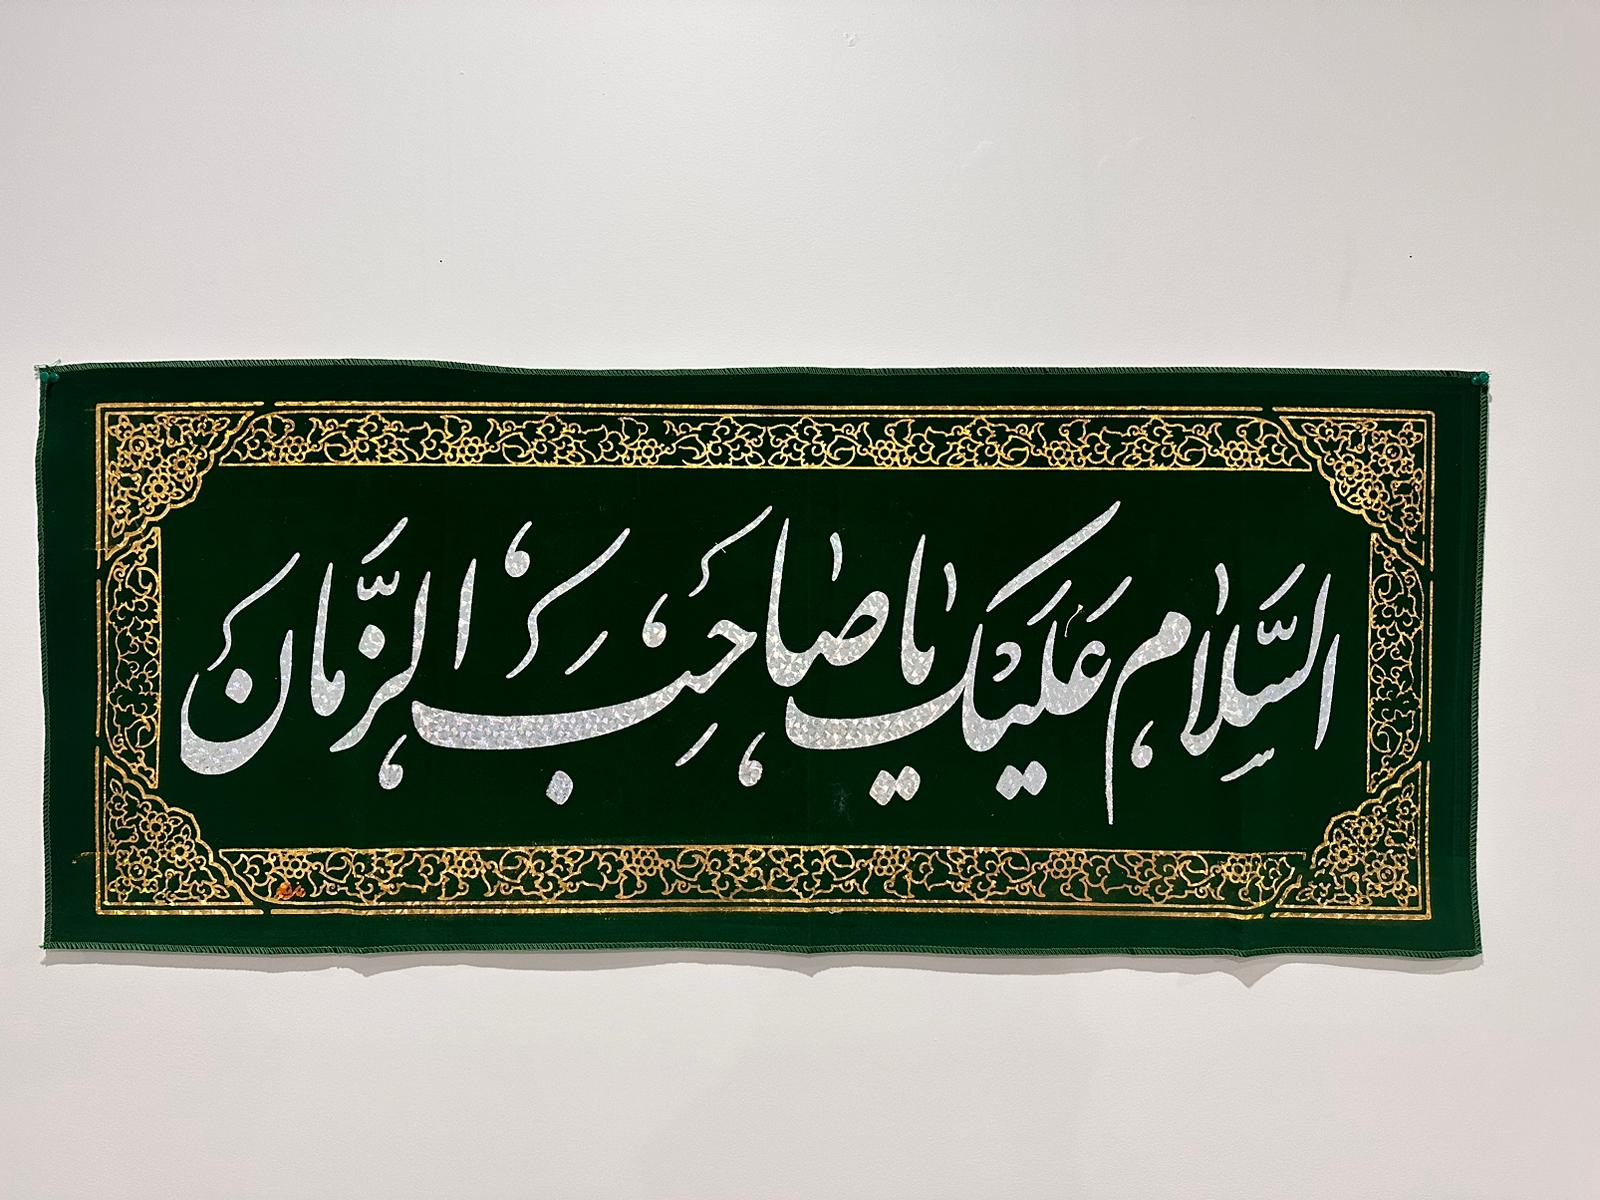 السلام عليك يا صاحب الزمان